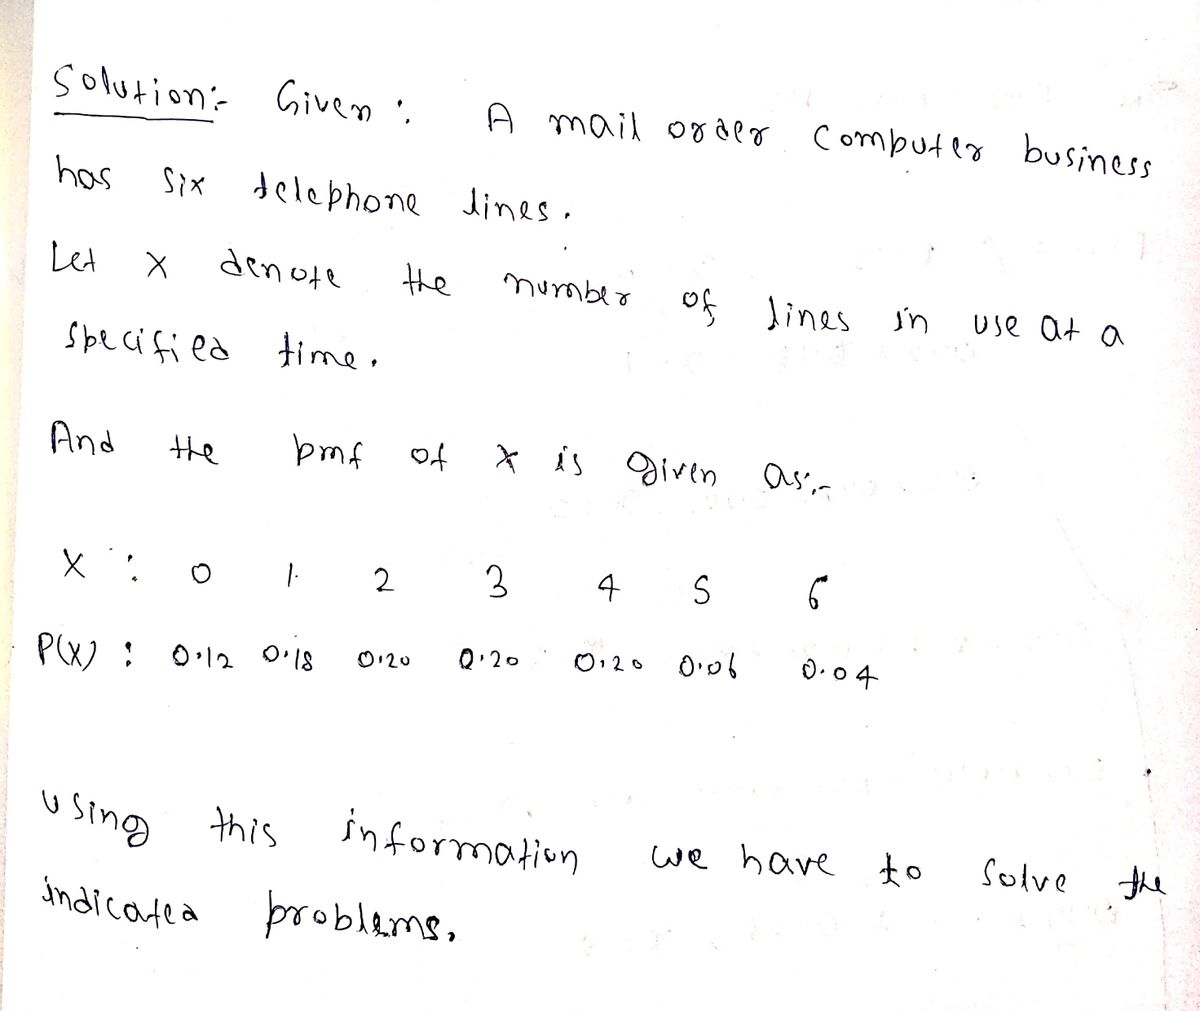 Solution:- Given : A mail order computer business
has six telephone lines.
Let x denote the number of lines in use at a
specified time.
And the pmf of x is given as:-
X : 0 1 2 3 4 5 6
P(X) : 0.12 0.18 0.20 0.20 0.20 0.06 0.04
using this information we have to solve the
indicated problems.